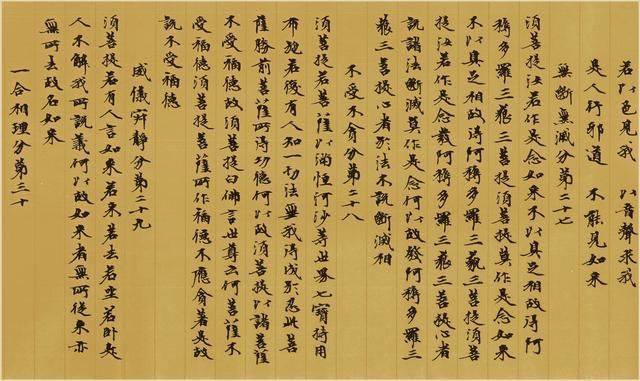 若以色見我 以音聲求我
是人行邪道 不能見如來
無斷無滅分第二十七
須菩提汝若作是念如來不以具足相故得阿
耨多羅三藐三菩提須菩提莫作是念如來
不以具足相故得阿耨多羅三藐三菩提須菩
提汝若作是念發阿耨多羅三藐三菩提心者
說諸法斷滅莫作是念何以故發阿耨多羅三
藐三菩提心者於法不說斷滅相
不受不貪分第二十八
須菩提若菩薩以滿恒河沙等世界七寶持用
布施若復有人知一切法無我得成於忍此菩
薩勝前菩薩所得功德何以故須菩提以諸菩薩
不受福德故須菩提白佛言世尊云何菩薩不
受福德須菩提菩薩所作福德不應貪著是故
說不受福德
威儀寂靜分第二十九
須菩提若有人言如來若來若去若坐若臥是
人不解我所說義何以故如來者無所從來亦
無所去故名如來
一合相理分第三十